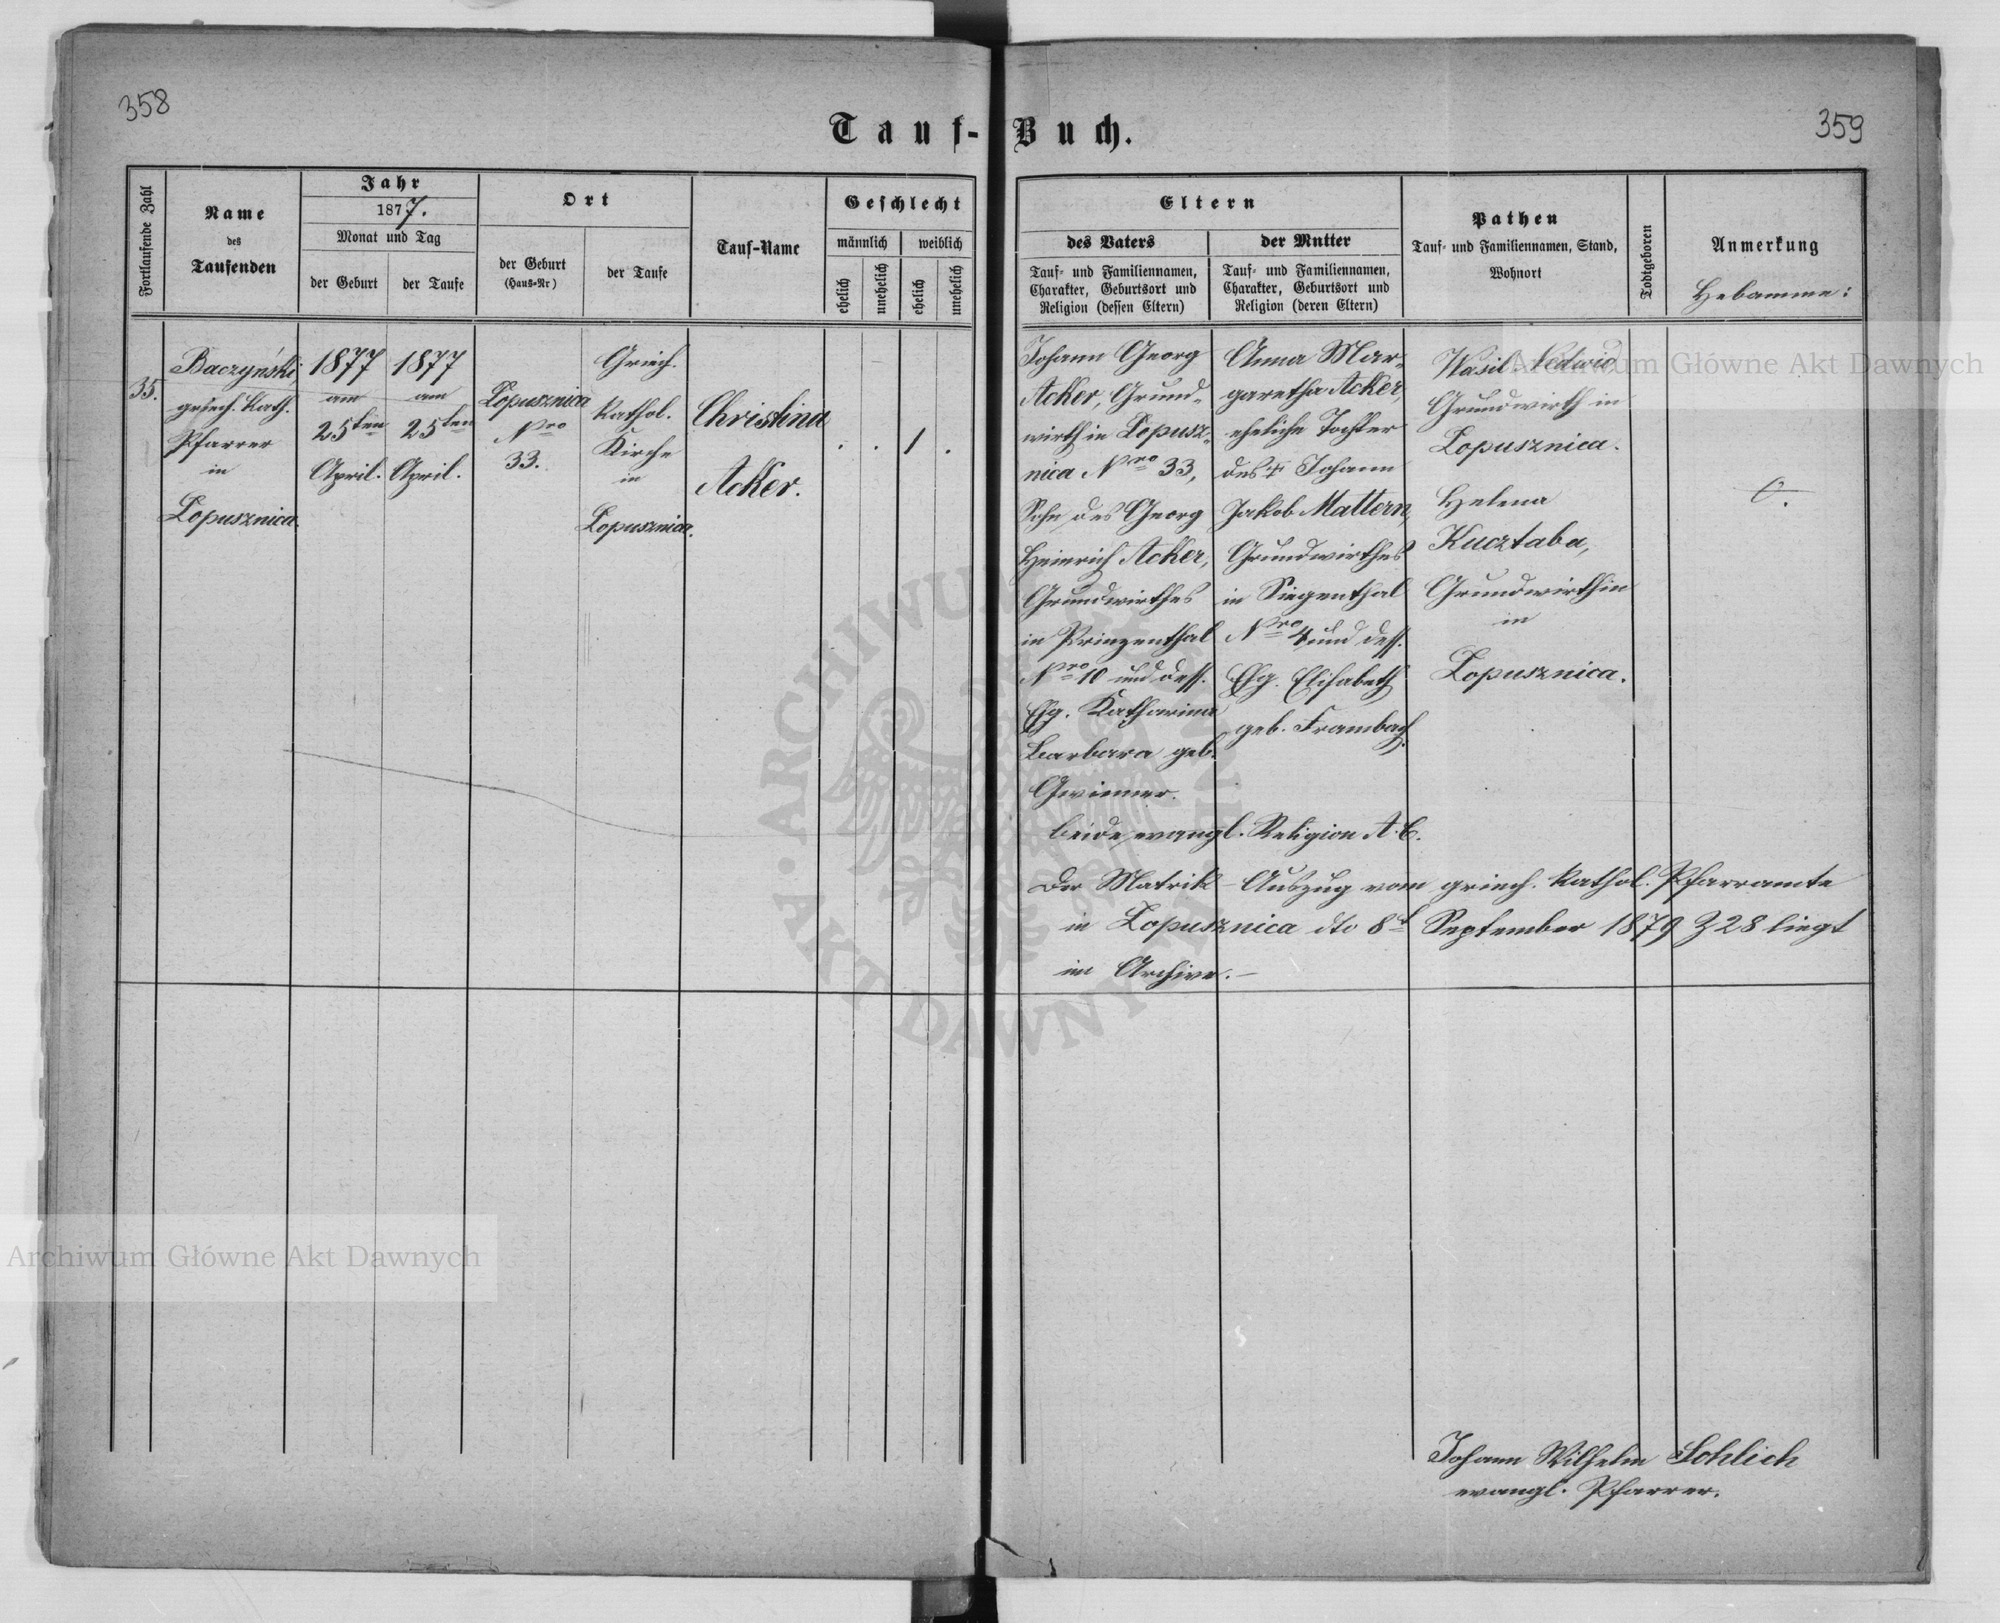 358
359
Tauf-Buch.
Fortlaufende Zahl
Name
des
Taufenden
Jahr
1877.
Monat und Tag
der Geburt
der Taufe
Ort
der Geburt
(Haus-Nr)
der Taufe
Tauf-Name
Geschlecht
männlich
weiblich
ehelich
unehelich
ehelich
unehelich
Eltern
des Vaters
Tauf- und Familiennamen,
Charakter, Geburtsort und
Religion (dessen Eltern)
der Mutter
Tauf- und Familiennamen,
Charakter, Geburtsort und
Religion (deren Eltern)
Pathen
Tauf- und Familiennamen, Stand,
Wohnort
Todtgeboren
Anmerkung
Hebamme:
35.
Baczyński
griech. kath.
Pfarrer
in
Lopusznica.
1877
am
25ten
April.
1877
am
25ten
April.
Lopusznica
Nro
33.
Griech.
kathol.
Kirche
in
Lopusznica.
Christina
Acker.
. . 1 .
Johann Georg
Acker, Grund-
wirth in Lopusz-
nica Nro 33,
Sohn des Georg
Heinrich Acker,
Grundwirthes
in Prinzenthal
Nro 10 und dess.
Ehg. Katharina
Barbara geb.
Anna Mar-
garetha Acker,
eheliche Tochter
des † Johann
Jakob Mattern,
Grundwirthes
in Siegenthal
Nro 4 und dess.
Ehg. Elisabeth
geb. Frambach.
beide evangl. Religion A. C.
Wasil
Grundwirth in
Lopusznica.
Helena
Kucztaba,
Grundwirthin
in
Lopusznica.
Der Matrik-Auszug vom griech. kathol. Pfarramte
in Lopusznica dto 8t September 1879 Z 28 liegt
im Archive.-
Johann Wilhelm Sohlich
evangl. Pfarrer.
Archiwum Główne Akt Dawnych
Archiwum Główne Akt Dawnych
ARCHIWUM GŁÓWNE AKT DAWNYCH